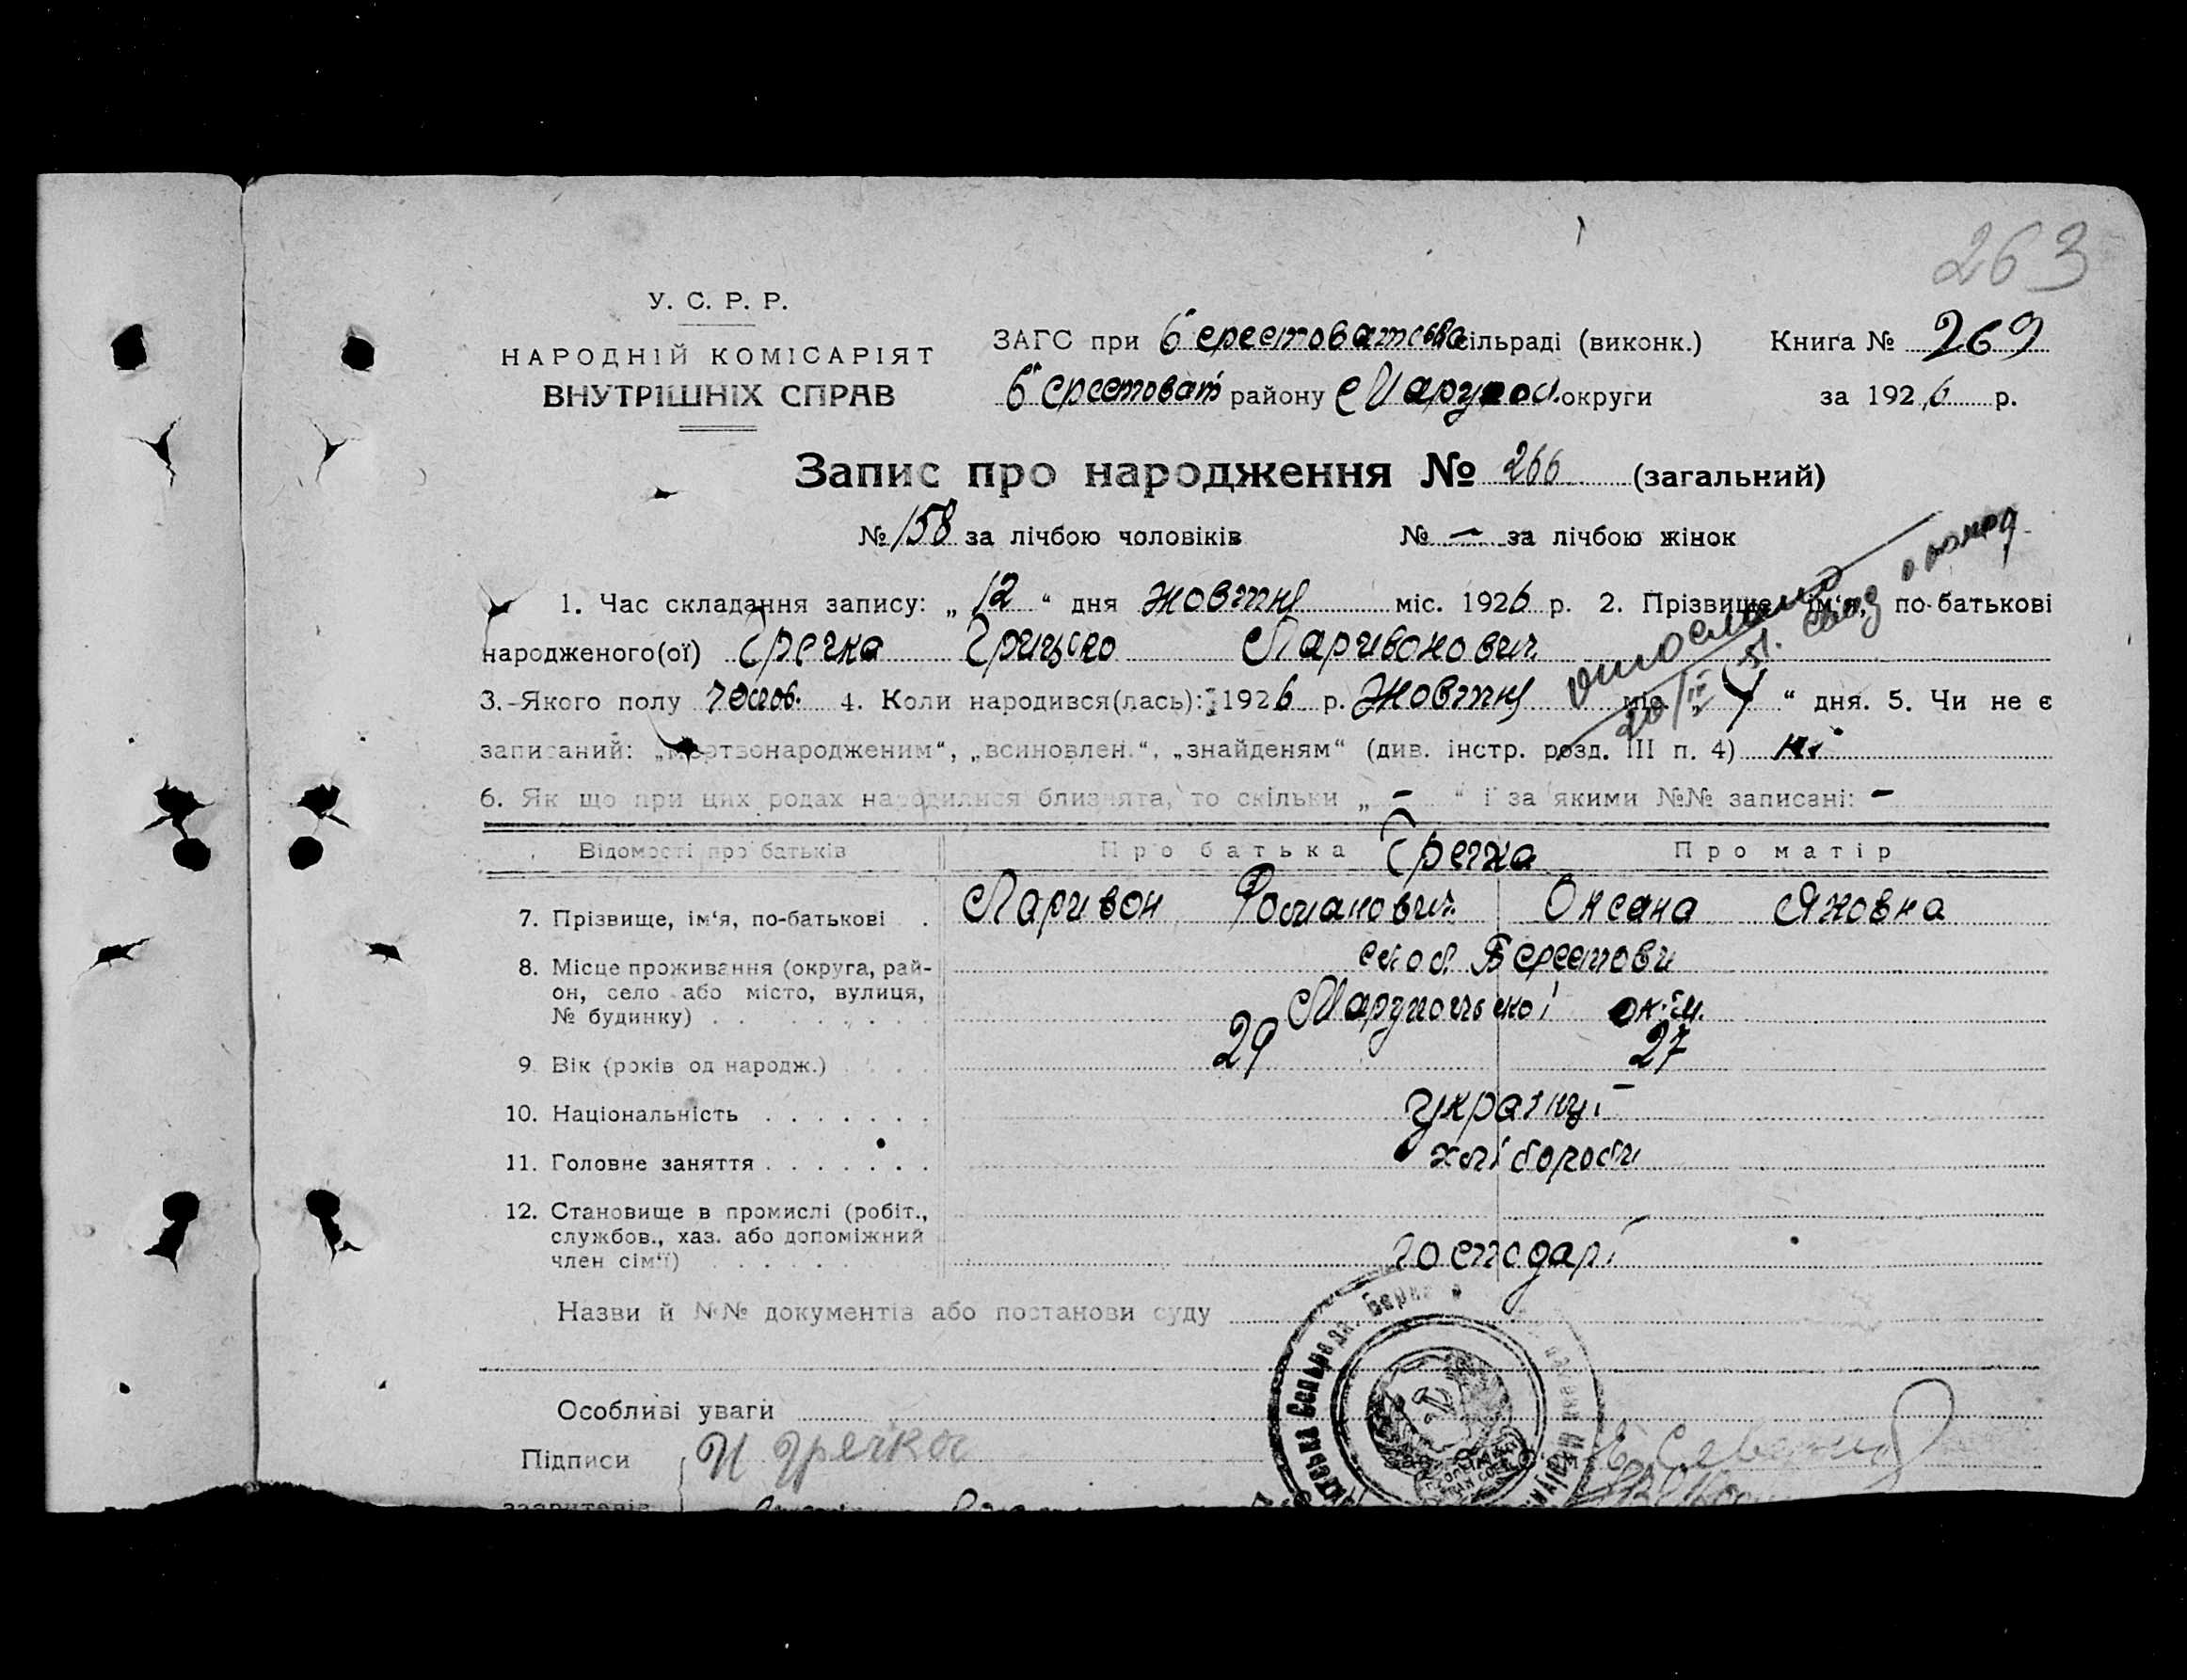 263
У. С. Р. Р.
НАРОДНІЙ КОМІСАРІЯТ
ВНУТРІШНІХ СПРАВ
ЗАГС при Берестоватській сільраді (виконк.) Книга № 269
Берестоват району Маруполь. округи за 1926 р.
Запис про народження № 266 (загальний)
№ 158 за лічбою чоловіків № — за лічбою жінок
1. Час складання запису: „ 12 “ дня жовтня міс. 1926 р. 2. Прізвище, ім‘я, по-батькові
народженого(ої) Гречка Грицько Ларивонович
3. Якого полу чолов. 4. Коли народився(лась): 1926 р. Жовтня міс. „ 4 “ дня. 5. Чи не є
записаний: „мертвонародженим“, „всиновлен.“, „знайденям“ (див. інстр. розд. III п. 4) ні
6. Як що при цих родах народилися близнята, то скільки „ – “ і за якими №№ записані: –
Відомості про батьків Про батька Гречка Про матір
7. Прізвище, ім‘я, по-батькові . Ларивон Романович Оксана Яковна
8. Місце проживання (округа, рай-
он, село або місто, вулиця,
№ будинку) . . . . . . .
слоб. Берестови
Марупольської
9. Вік (років од народж.) . . . . 29 27
10. Національність . . . . . . . українці
11. Головне заняття . . . . . . . хлібороби
12. Становище в промислі (робіт.,
службов., хаз. або допоміжний
член сім‘ї) . . . . . . господарі
Назви й №№ документів або постанови суду
Особливі уваги
Підписи И Гречка